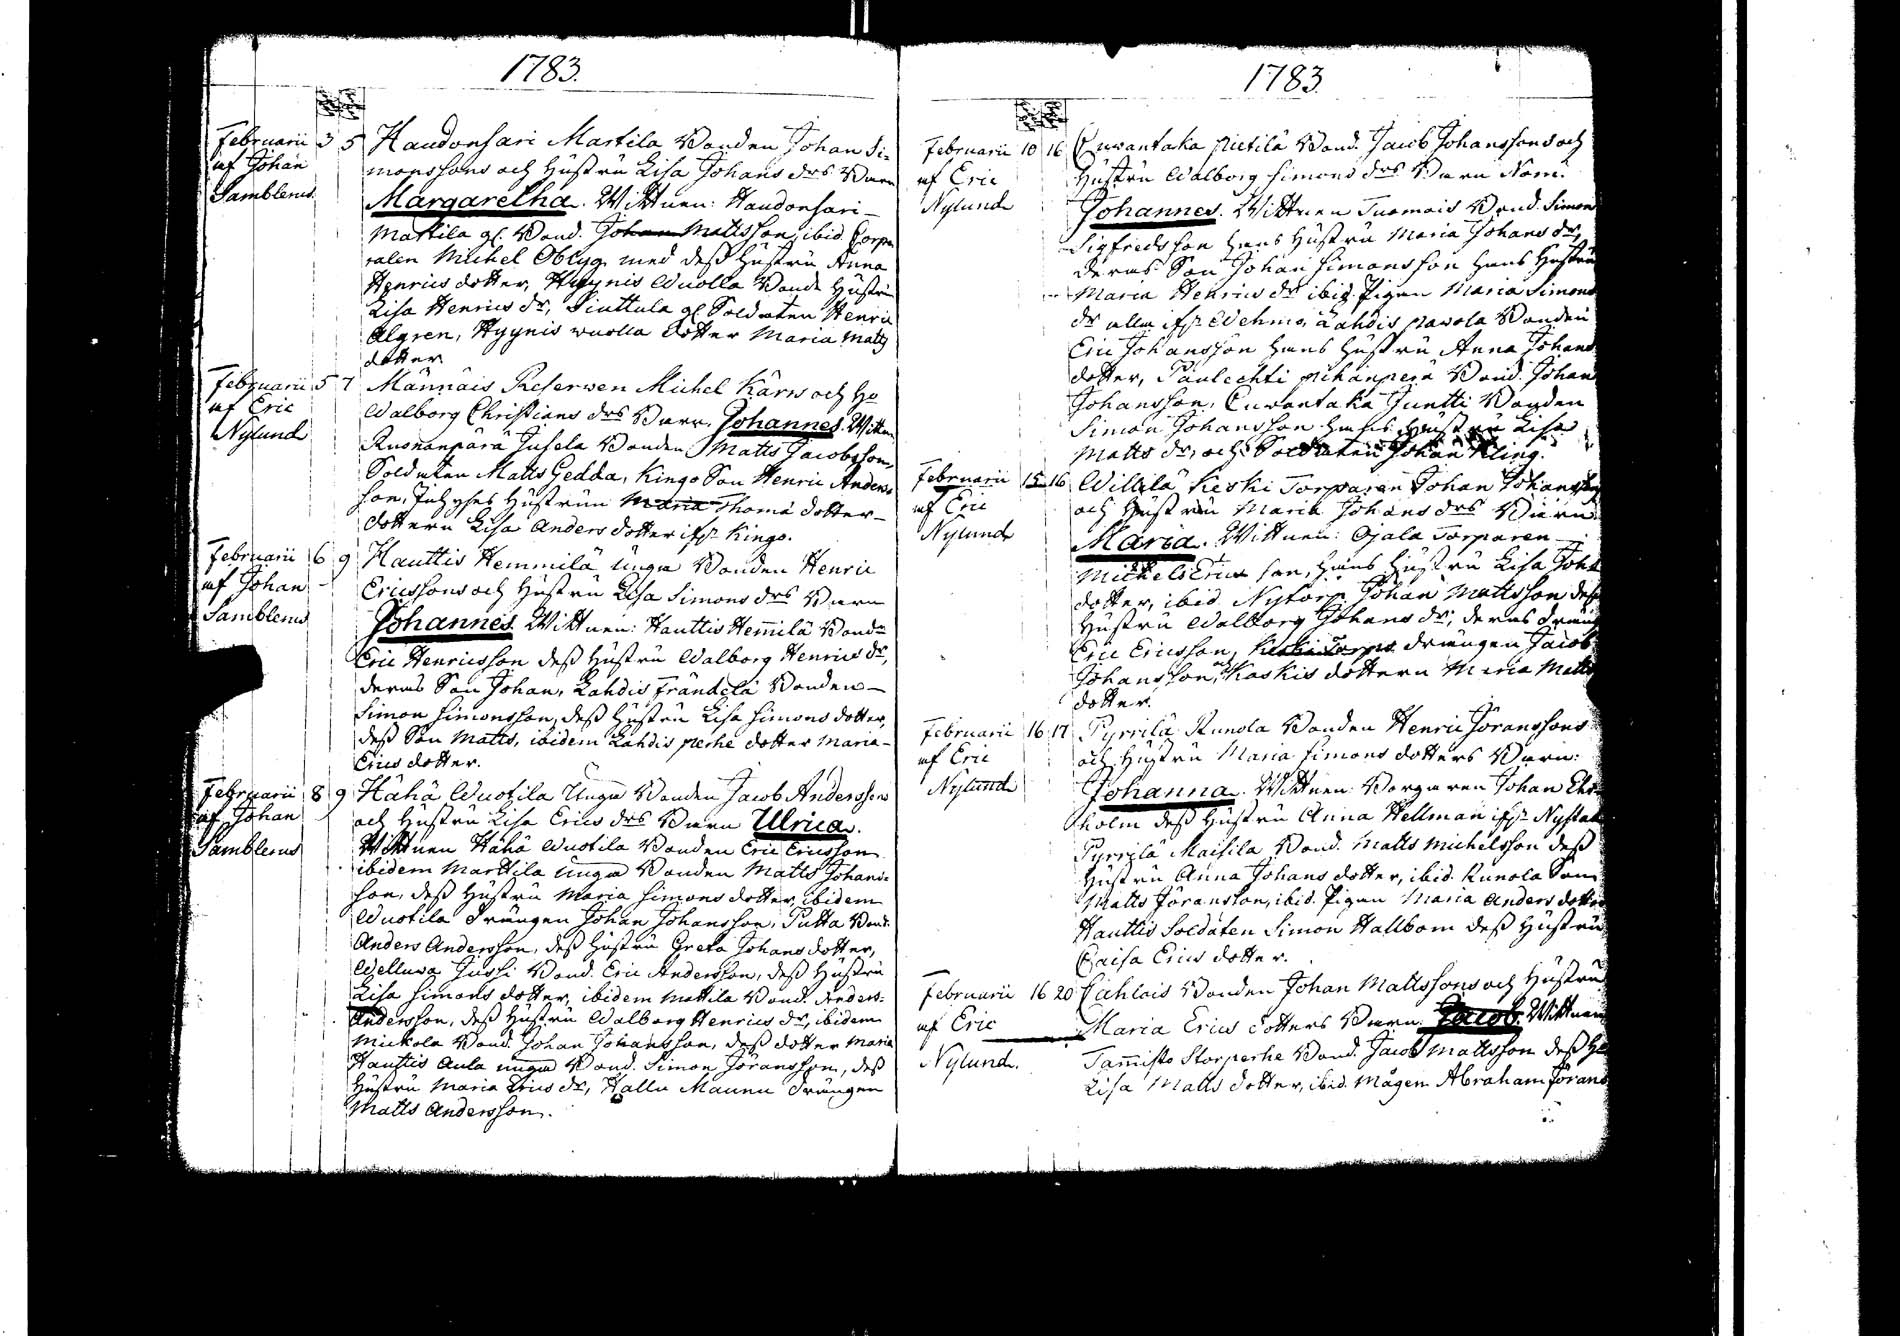 1783.
Februarii 3 5 Haudonsari Martila Bonden Johan Si-
af Johan monssons och Hustru Lisa Johans drs Barn
Samblerus Margaretha. Wittnen: Haudonsari
Martila gl. Bond. Johan Mattsson, ibid. Corpo
ralen Michel Oblyg med dess Hustru Anna
Henrics dotter, Hyynis Wuolla Bonde Hustru
Lisa Henrics dr, Siuttula gl Soldaten Henric
Algren, Hyynis wuolla dotter Maria Matts
dotter
Februarii 5 7 Männäis Reserwen Michel Kärn och Ho
af Eric Walborg Christians drs Barn. Johannes. Wittn
Nylund Rusnanpärä Jusela Bonden Matts Jacobsson,
Soldaten Matts Gedda, Kingo Son Henric Anders
son, Hustrun Maria Thomæ dotter
dottern Lisa Anders dotter ifr. Kingo.
Februarii 6 9 Hauttis Hemmilä Unga Bonden Henric
af Johan Ericssons och Hustru Lisa Simons drs Barn
Samblerus Johannes. Wittnen: Hauttis Hemilä Bondn
Eric Henricsson dess Hustru Walborg Henrics dr,
deras Son Johan, Lahdis Frändelä Bonden
Simon Simonsson, dess Hustru Lisa Simons dotter,
dess Son Matts, ibidem Lahdis perhe dotter Maria
Erics dotter.
Februarii 8 9 Hähä Wuotila Unga Bonden Jacob Anderssons
af Johan och Hustru Lisa Erics drs Barn Ulrica.
Samblerus Wittnen Hähä Wuotila Bonden Eric Ericsson
ibidem Marttila Unga Bonden Matts Johans
son, dess Hustru Maria Simons dotter, ibidem
Wuotila Drängen Johan Johansson, Putta Bond.
Anders Andersson, dess Hustru Greta Johans dotter,
Welluwa Jussi Bond. Eric Andersson, dess Hustru
Lisa Simons dotter, ibidem Mattila Bond. Anders
Andersson, dess Hustru Walborg Henrics dr, ibidem
Mickola Bond. Johan Johansson, dess dotter Maria
Hauttis Aula unga Bond. Simon Jöransson, dess
Hustru Maria Erics dr, Hallu Maunu Drängen
Matts Andersson.
1783.
Februarii 10 16 Curantaka Pietilä Bond. Jacob Johanssons och
af Eric Hustru Walborg Simons drs Barn Nom.
Nylund Johannes. Wittnen Tuomois Bond. Simon
Sigfredsson hans Hustru Maria Johans dr,
deras Son Johan Simonsson hans Hustru
Maria Henrics dr ibid. Pigan Maria Simons
dr alla ifr. Wehmo, Lahdis Pavola Bonden
Eric Johansson hans Hustru Anna Johans
dotter, Paulechti Bond. Johan
Johansson, Curantaka Juntti Bonden
Simon Johansson hans Hustru Lisa
Matts dr, och Soldaten Johan Kling.
Februarii 15 16 Willilä Keski Torparen Johan Johanssons
af Eric och Hustru Maria Johans drs Barn
Nylund Maria. Wittnen: Ojala Torparen
Michel Erics son, hans Hustru Lisa Joh
dotter, ibid. Nytorp Johan Mattsson dess
Hustru Walborg Johans dr, deras Dräng
Eric Ericsson, Keski Torps drängen Jacob
Johansson, Kaskis dottern Maria Matts
dotter.
Februarii 16 17 Pyrrilä Runola Bonden Henric Jöranssons
af Eric och Hustru Maria Simons dotters Barn:
Nylund Johanna. Wittnen: Borgaren Johan
holm dess Hustru Anna Hellman ifr. Nystad
Pyrrilä Maisila Bond. Matts Michelsson dess
Hustru Anna Johans dotter, ibid. Runola Son
Matts Jöransson, ibid. Pigan Maria Anders dotter
Hauttis Soldaten Simon Hallbom dess Hustru
Caisa Erics dotter.
Februarii 16 20 Cahlois Bonden Johan Mattssons och Hustru
af Eric Maria Erics dotters Barn. Jacob. Wittnen
Nylund. Tamisto Storperhe Bond. Jacob Mattsson dess Ho
Lisa Matts dotter, ibid. Mågen Abraham Jörans